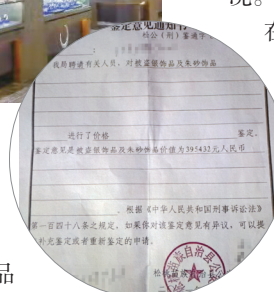 说。
在
鉴定意见通知书
松公（刑）鉴通字
我局聘请有关人员，对被盗银饰品及朱砂饰品
进行了价格 鉴定。
鉴定意见是被盗银饰品及朱砂饰品价值为395432元人民币
根据《中华人民共和国刑事诉讼法》
第一百四十八条之规定，如果你对该鉴定意见有异议，可以提
补充鉴定或者重新鉴定的申请。
品
族自治县公